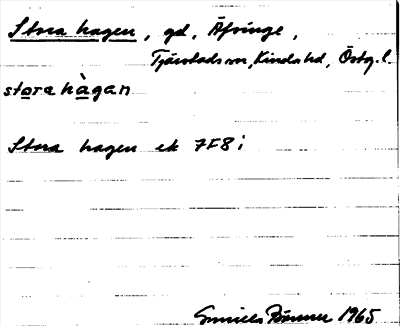 Stora hagen, gd, Äfvinge,
Tjärstads sn, Kinda hd, Östg. l.
stora hàgan
Stora hagen ek 7F8i
Gunilla 1965